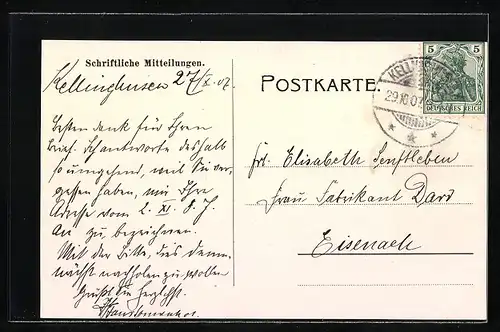 Schriftliche Mitteilungen.
Kellinghusen 27/X. 07.
Besten dank für Ihren
Brief. Ich antworte deshalb
so umgehend, weil Sie ver-
gessen haben, mir Ihre
Adresse vom 2. XI. d. J.
an zu bezeichnen.
Mit der Bitte, dies demn-
nächst nachholen zu wollen
Grüßt Sie herzlichst.
POSTKARTE.
5 5
DEUTSCHES REICH
29.10.07
Frl. Elisabeth Senftleben
Frau Fabrikant Darr
Eisenach